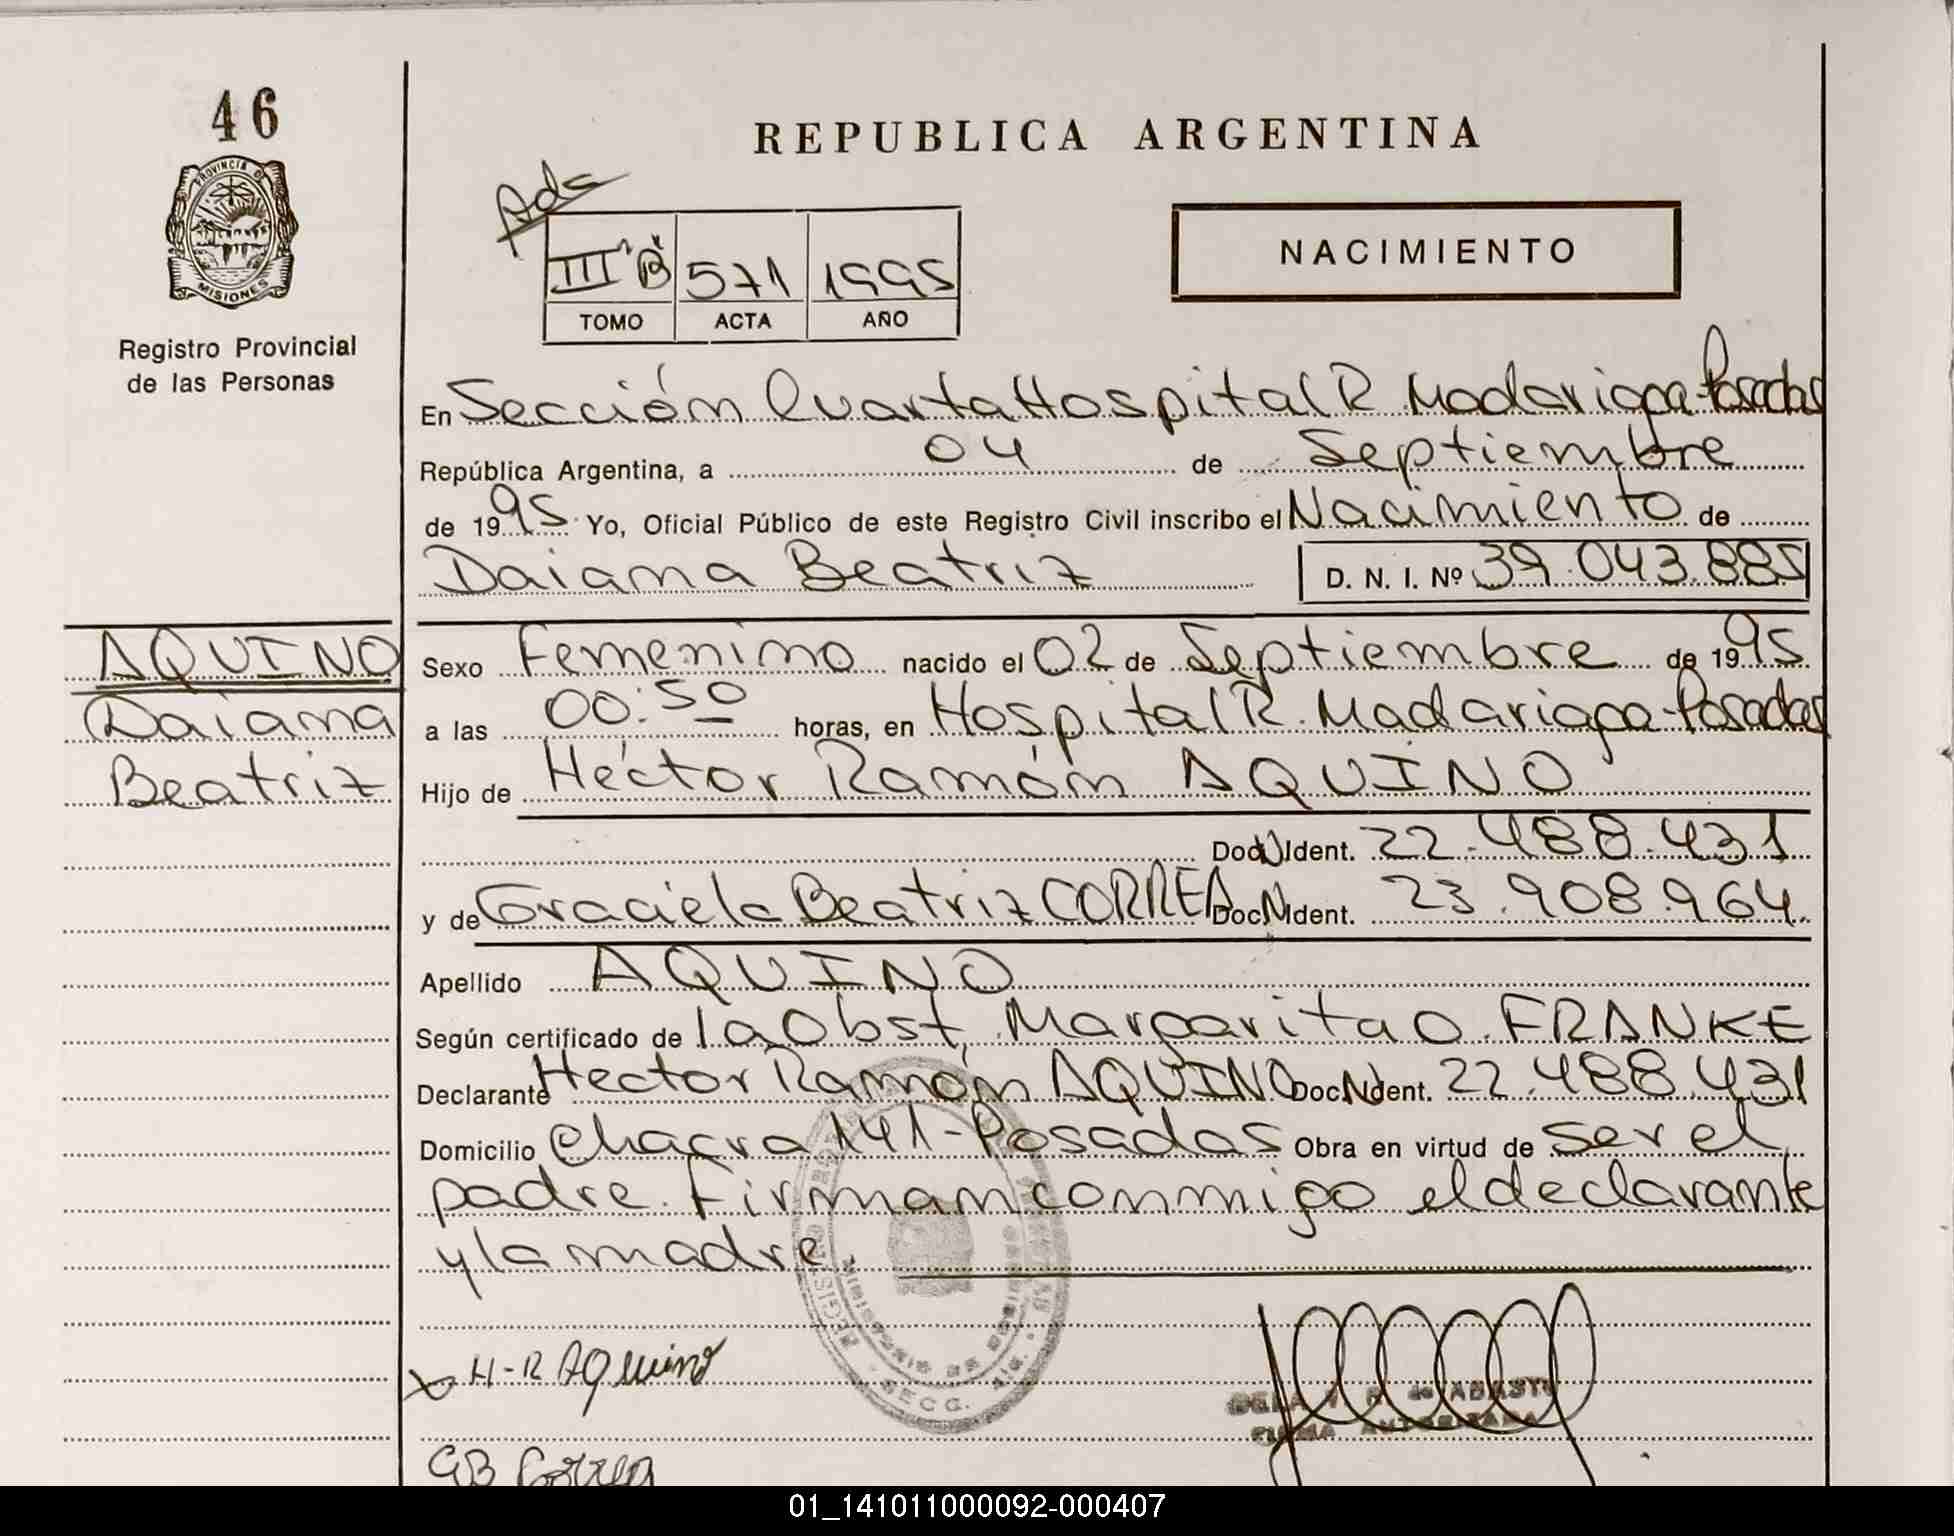 46
PROVINCIA DE
MISIONES
Registro Provincial
de las Personas
REPUBLICA ARGENTINA
III B 571 1995
TOMO ACTA AÑO
NACIMIENTO
En Sección Cuarta Hospital R. Madariaga-Posadas
República Argentina, a 04 de Septiembre
de 1995 Yo, Oficial Público de este Registro Civil inscribo el Nacimiento de
Daiana Beatriz D. N. I. Nº 39.043.885
AQUINO
Daiana
Beatriz
Sexo Femenino nacido el 02 de Septiembre de 1995
a las 00:50 horas, en Hospital R. Madariaga-Posadas
Hijo de Héctor Ramón AQUINO
Doc. Ident. 22.488.431
y de Graciela Beatriz CORREA Doc. Ident. 23.908.964
Apellido AQUINO
Según certificado de la Obst. Margarita O. FRANKE
Declarante Hector Ramón AQUINO Doc. Ident. 22.488.431
Domicilio Chacra 141-Posadas Obra en virtud de ser el
padre. Firman conmigo el declarante
y la madre.
H-R AQuino
GB Correa
de ABASTO
FIRMA AUTORIZADA
01_141011000092-000407